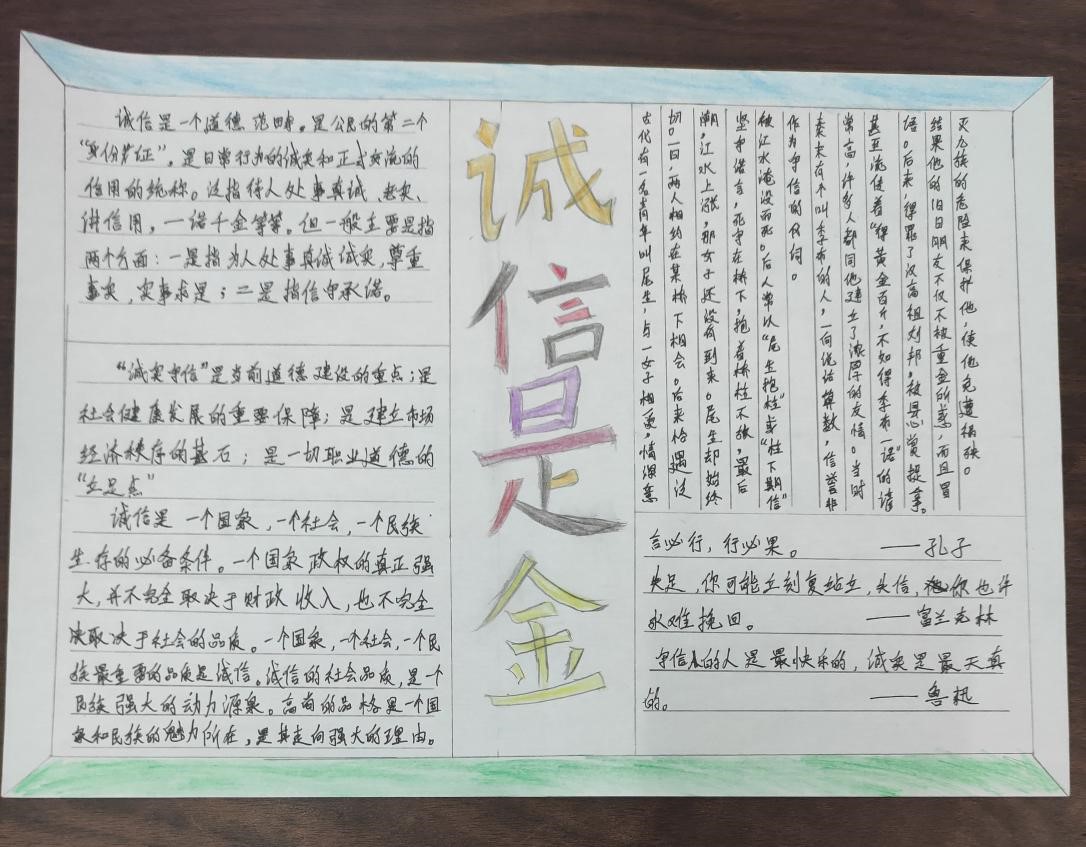 诚信是一个道德范畴。是公民的第二个
“身份证”。是日常行为的诚实和正式交流的
信用的统称。泛指待人处事真诚、老实、
讲信用，一诺千金等等。但一般主要是指
两个方面：一是指为人处事真诚诚实，尊重
事实，实事求是；二是指信守承诺。
“诚实守信”是当前道德建设的重点；是
社会健康发展的重要保障；是建立市场
经济秩序的基石；是一切职业道德的
“立足点”
诚信是一个国家，一个社会，一个民族
生存的必备条件。一个国家政权的真正强
大，并不完全取决于财政收入，也不完全
决取决于社会的品质。一个国家，一个社会，一个民
族最重要的品质是诚信。诚信的社会品质，是一个
民族强大的动力源泉。高尚的品格是一个国
家和民族的魅力所在，是其走向强大的理由。
诚
信
是
金
灭九族的危险来保护他，使他免遭祸殃。
结果他的旧日朋友不仅不被重金所惑，而且冒
语。后来，得罪了汉高祖刘邦，被悬赏捉拿。
甚至流传着“得黄金百斤，不如得季布一诺”的谚
常高，许多人都同他建立了浓厚的友情。当时
秦末有个叫季布的人，一向说话算数，信誉非
作为守信的代词。
被江水淹没而死。后人常以“尾生抱柱”或“柱下期信”
坚守诺言，死守在桥下，抱着桥柱不放，最后
潮，江水上涨，那女子还没有到来。尾生却始终
切。一日，两人相约在某桥下相会。后来恰遇泛
古代有一名青年叫尾生，与一女子相爱，情深意
言必行，行必果。 ——孔子
失足，你可能立刻复站立，失信，你也许
永难挽回。 ——富兰克林
守信的人是最快乐的，诚实是最天真
的。 ——鲁迅